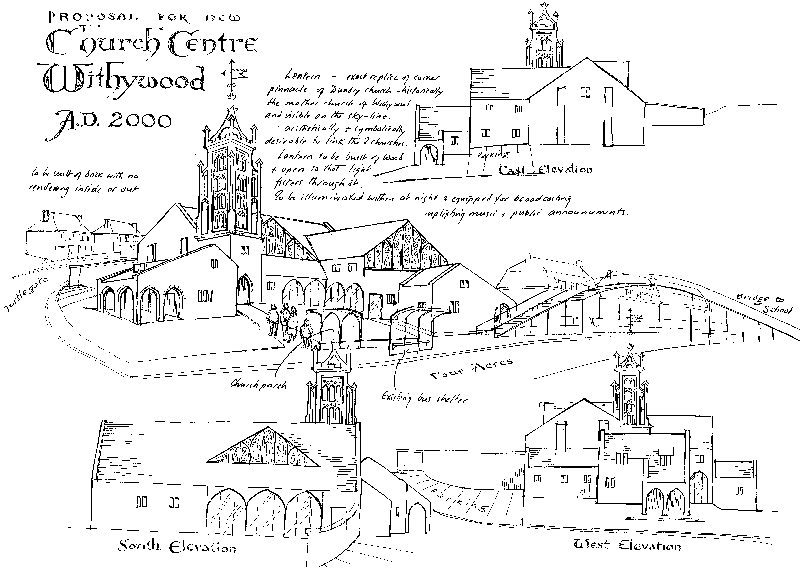 PROPOSAL FOR NEW
Church Centre
Withywood
A.D. 2000
Lantern – exact replica of corner
pinnacle of Dundry church – historically
the mother church of Withywood
and visible on the sky-line.
aesthetically & symbolically
desirable to link the 2 churches.
Lantern to be built of
& open so that light
filters through it.
To be illuminated within at night & equipped for broadcasting
uplifting music & public announcements.
to be built of brick with no
rendering inside or out
Parking
East Elevation
Bridge to
School
Four Acres
Church porch
Existing bus shelter
South Elevation
West Elevation